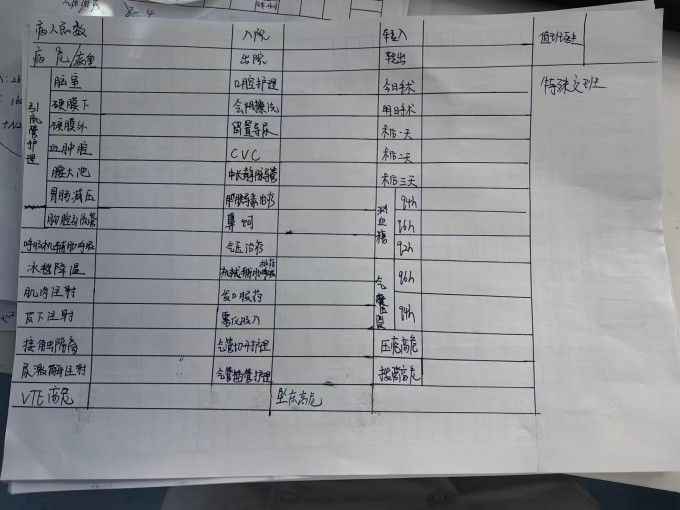 病人总数 入院 转入 值班医生
病危/病重 出院 转出
引流管护理 脑室 口腔护理 今日手术 特殊交班
硬膜下 会阴擦洗 明日手术
硬膜外 留置导尿 术后一天
血肿腔 CVC 术后二天
腰大池 中长静脉导管 术后三天
胃肠减压 测血糖 q4h
胸腔引流管 鼻饲 q6h
呼吸机辅助呼吸 气压治疗 q2h
冰毯降温 机械辅助排痰 q6h
肌肉注射 发口服药 q4h
皮下注射 雾化吸入
接触隔离 气管切开护理 压疮高危
尿激酶注射 气管插管护理 拔管高危
VTE高危 坠床高危